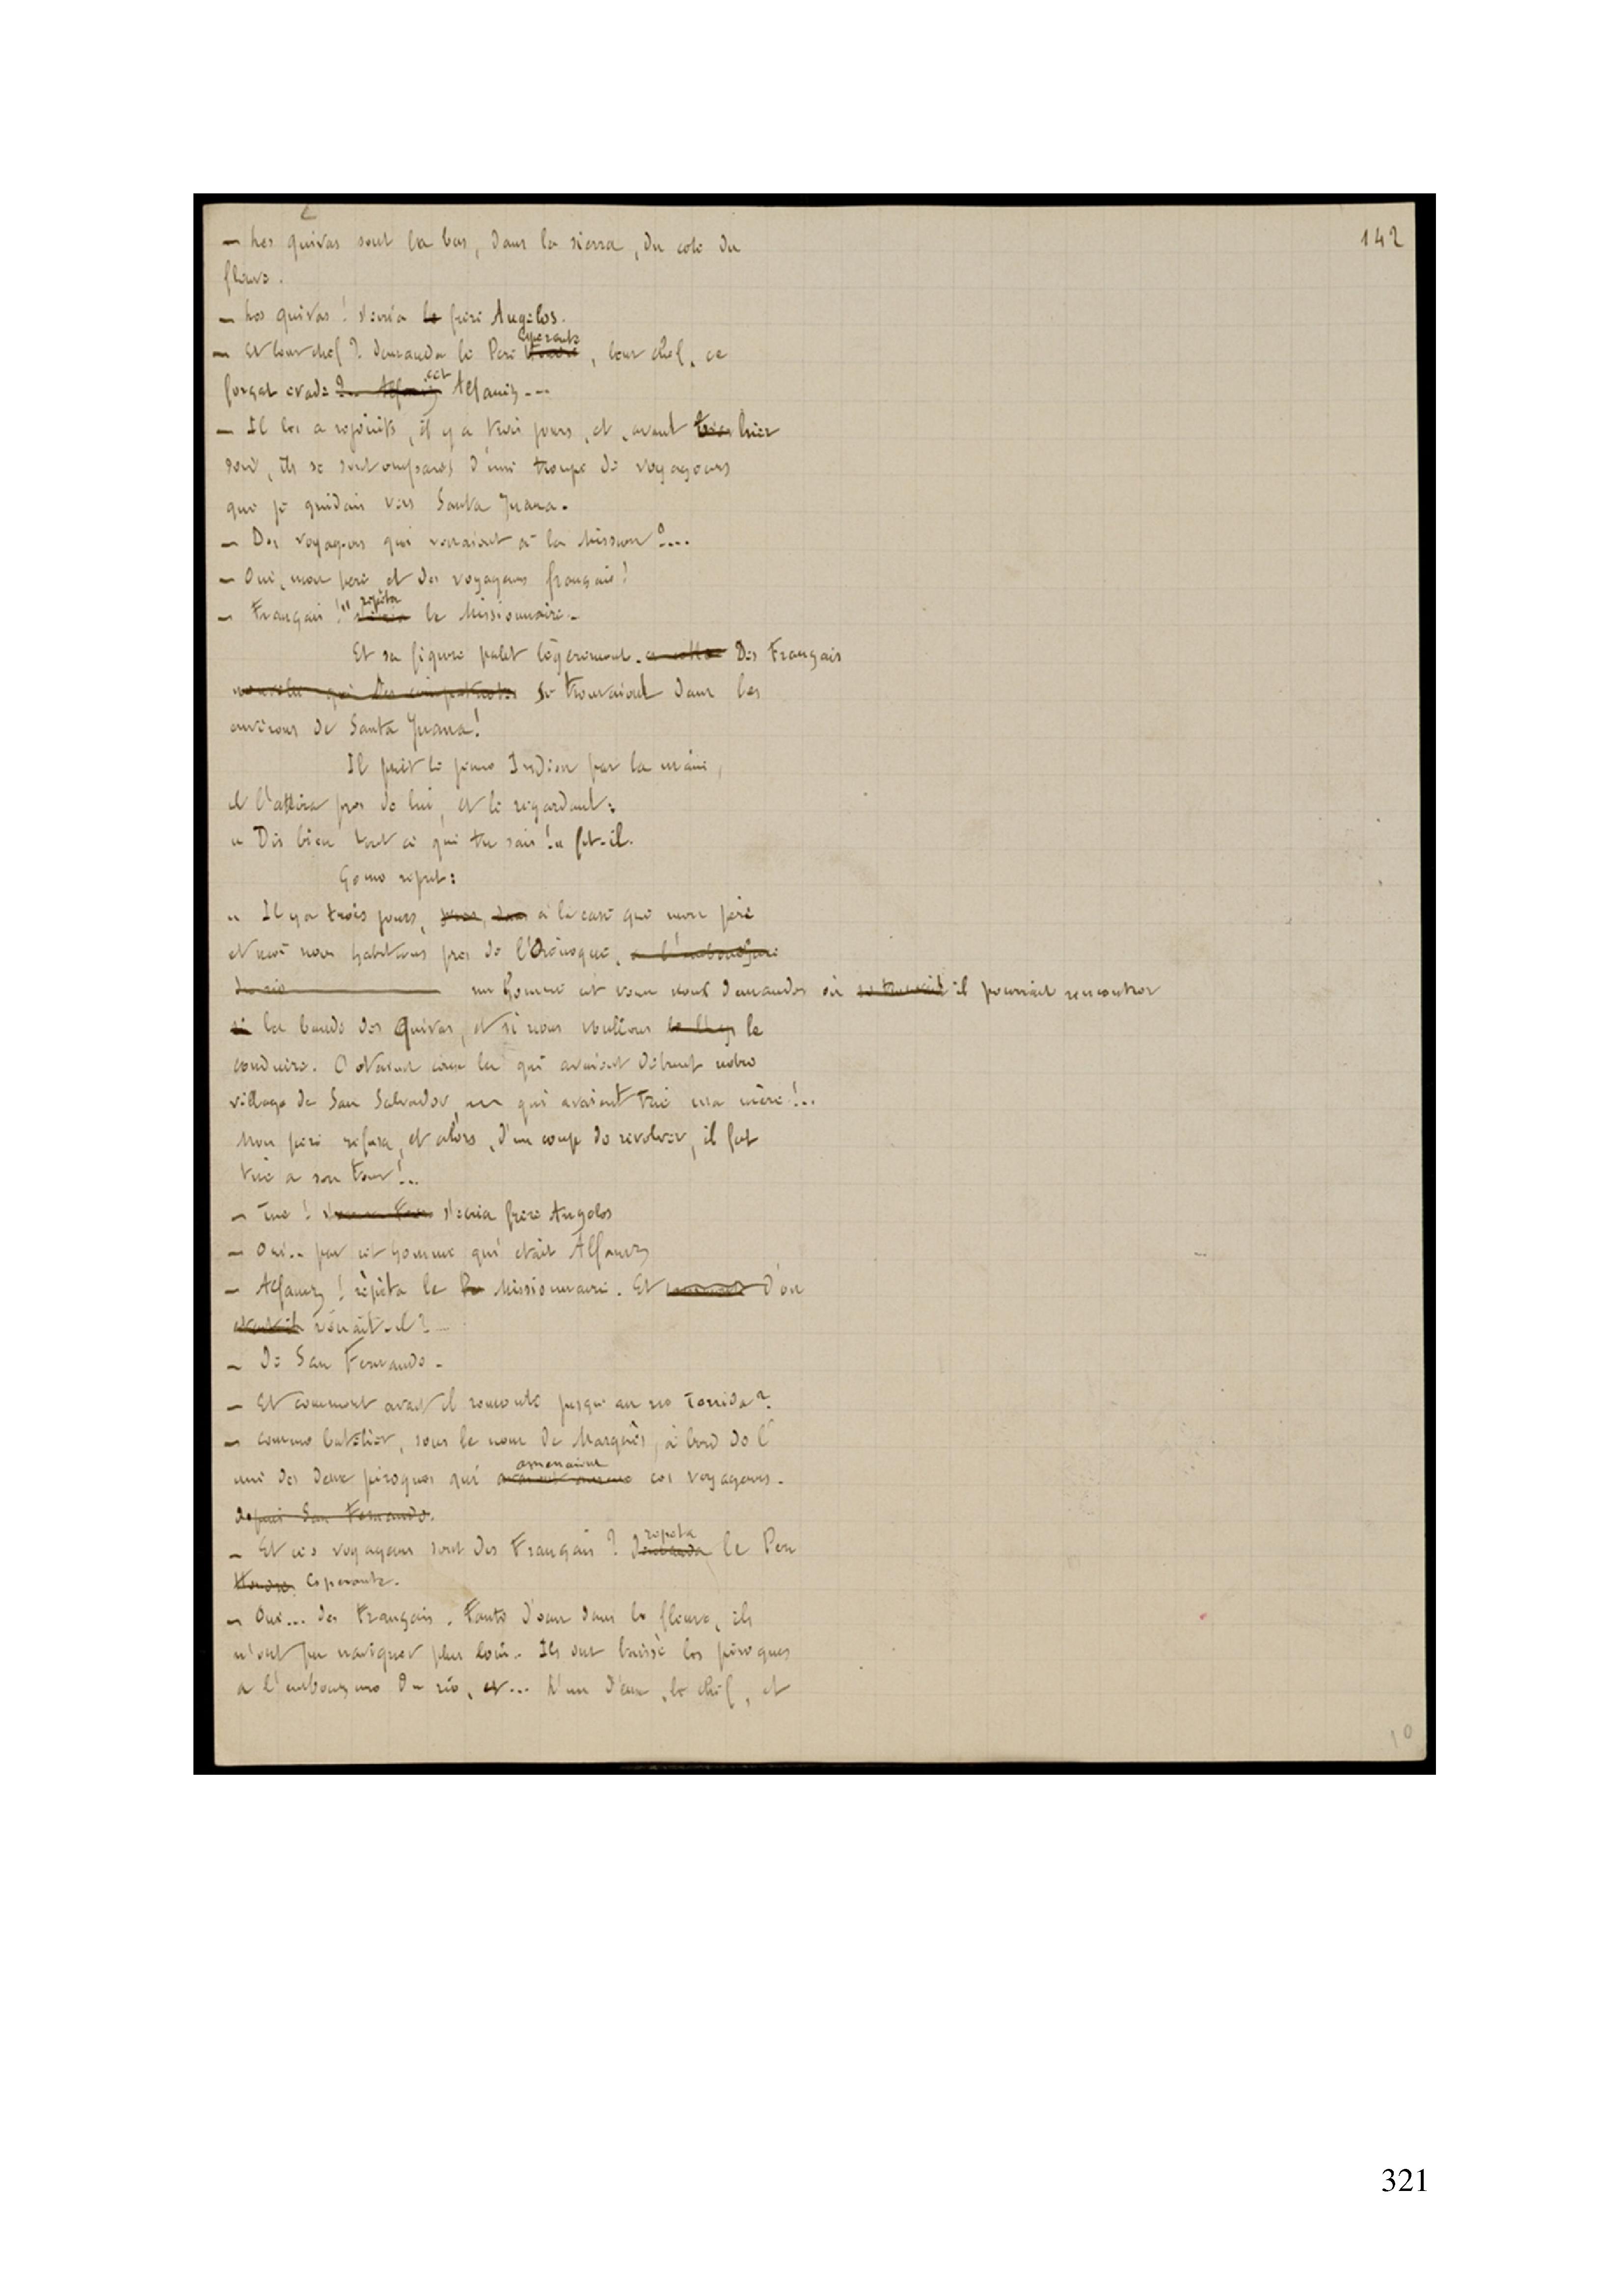 142
– Les quivas sont la bas, dans la sierra, du cote du
fleuve.
– Les quivas ! s'ecria le frère Angelos.
– Et leur chef ? demanda le Pere Esperante, leur chef, ce
forçat evadé ?.. Alfaniz cet Alfaniz...
– Il les a rejoints, il y a trois jours, et, avant hier
soir, ils se sont emparés d'une troupe de voyageurs
que je guidais vers Santa Juana.
– Des voyageurs qui venaient à la Mission ?...
– Oui, mon pere, et des voyageurs français !
– Français !" répéta le Missionnaire.
Et sa figure palit légèrement. cette Des Français
nouvelle que des compatriotes se trouvaient dans les
environs de Santa Juana !
Il prit le jeune Indien par la main,
il l'attira pres de lui, et le regardant :
" Dis bien tout ce que tu sais !" fit-il.
Gomo reprit :
" Il y a trois jours, à la case que mon père
et moi nous habitions pres de l'Orénoque, a l'embouchure
du rio un homme est venu nous demander où se trouvait il pourrait rencontrer
si la bande des Quivas, et si nous voulions le
conduire. C'etaient ceux la qui avaient détruit notre
village de San Salvador, qui avaient tué ma mère !..
Mon père refusa, et alors, d'un coup de revolver, il fut
tué a son tour !..
– Tué ! s'ecria frère Angelos
– Oui.. par cet homme qui etait Alfaniz
– Alfaniz ! répéta le Missionnaire. Et d'ou
venait-il ?
– De San Fernando.
– Et comment avait il remonté jusqu'au rio Torrida ?
– comme batelier, sous le nom de Marquès, à bord de l'
une des deux pirogues qui amenaient ces voyageurs.
depuis San Fernando.
– Et ces voyageurs sont des Français ? demanda répéta le Pere
Esperante.
– Oui... des Français. Faute d'eau dans le fleuve, ils
n'ont pu naviguer plus loin. Ils ont laissé les pirogues
a l'embouchure du rio, et... L'un d'eux, le chef, et
10
321